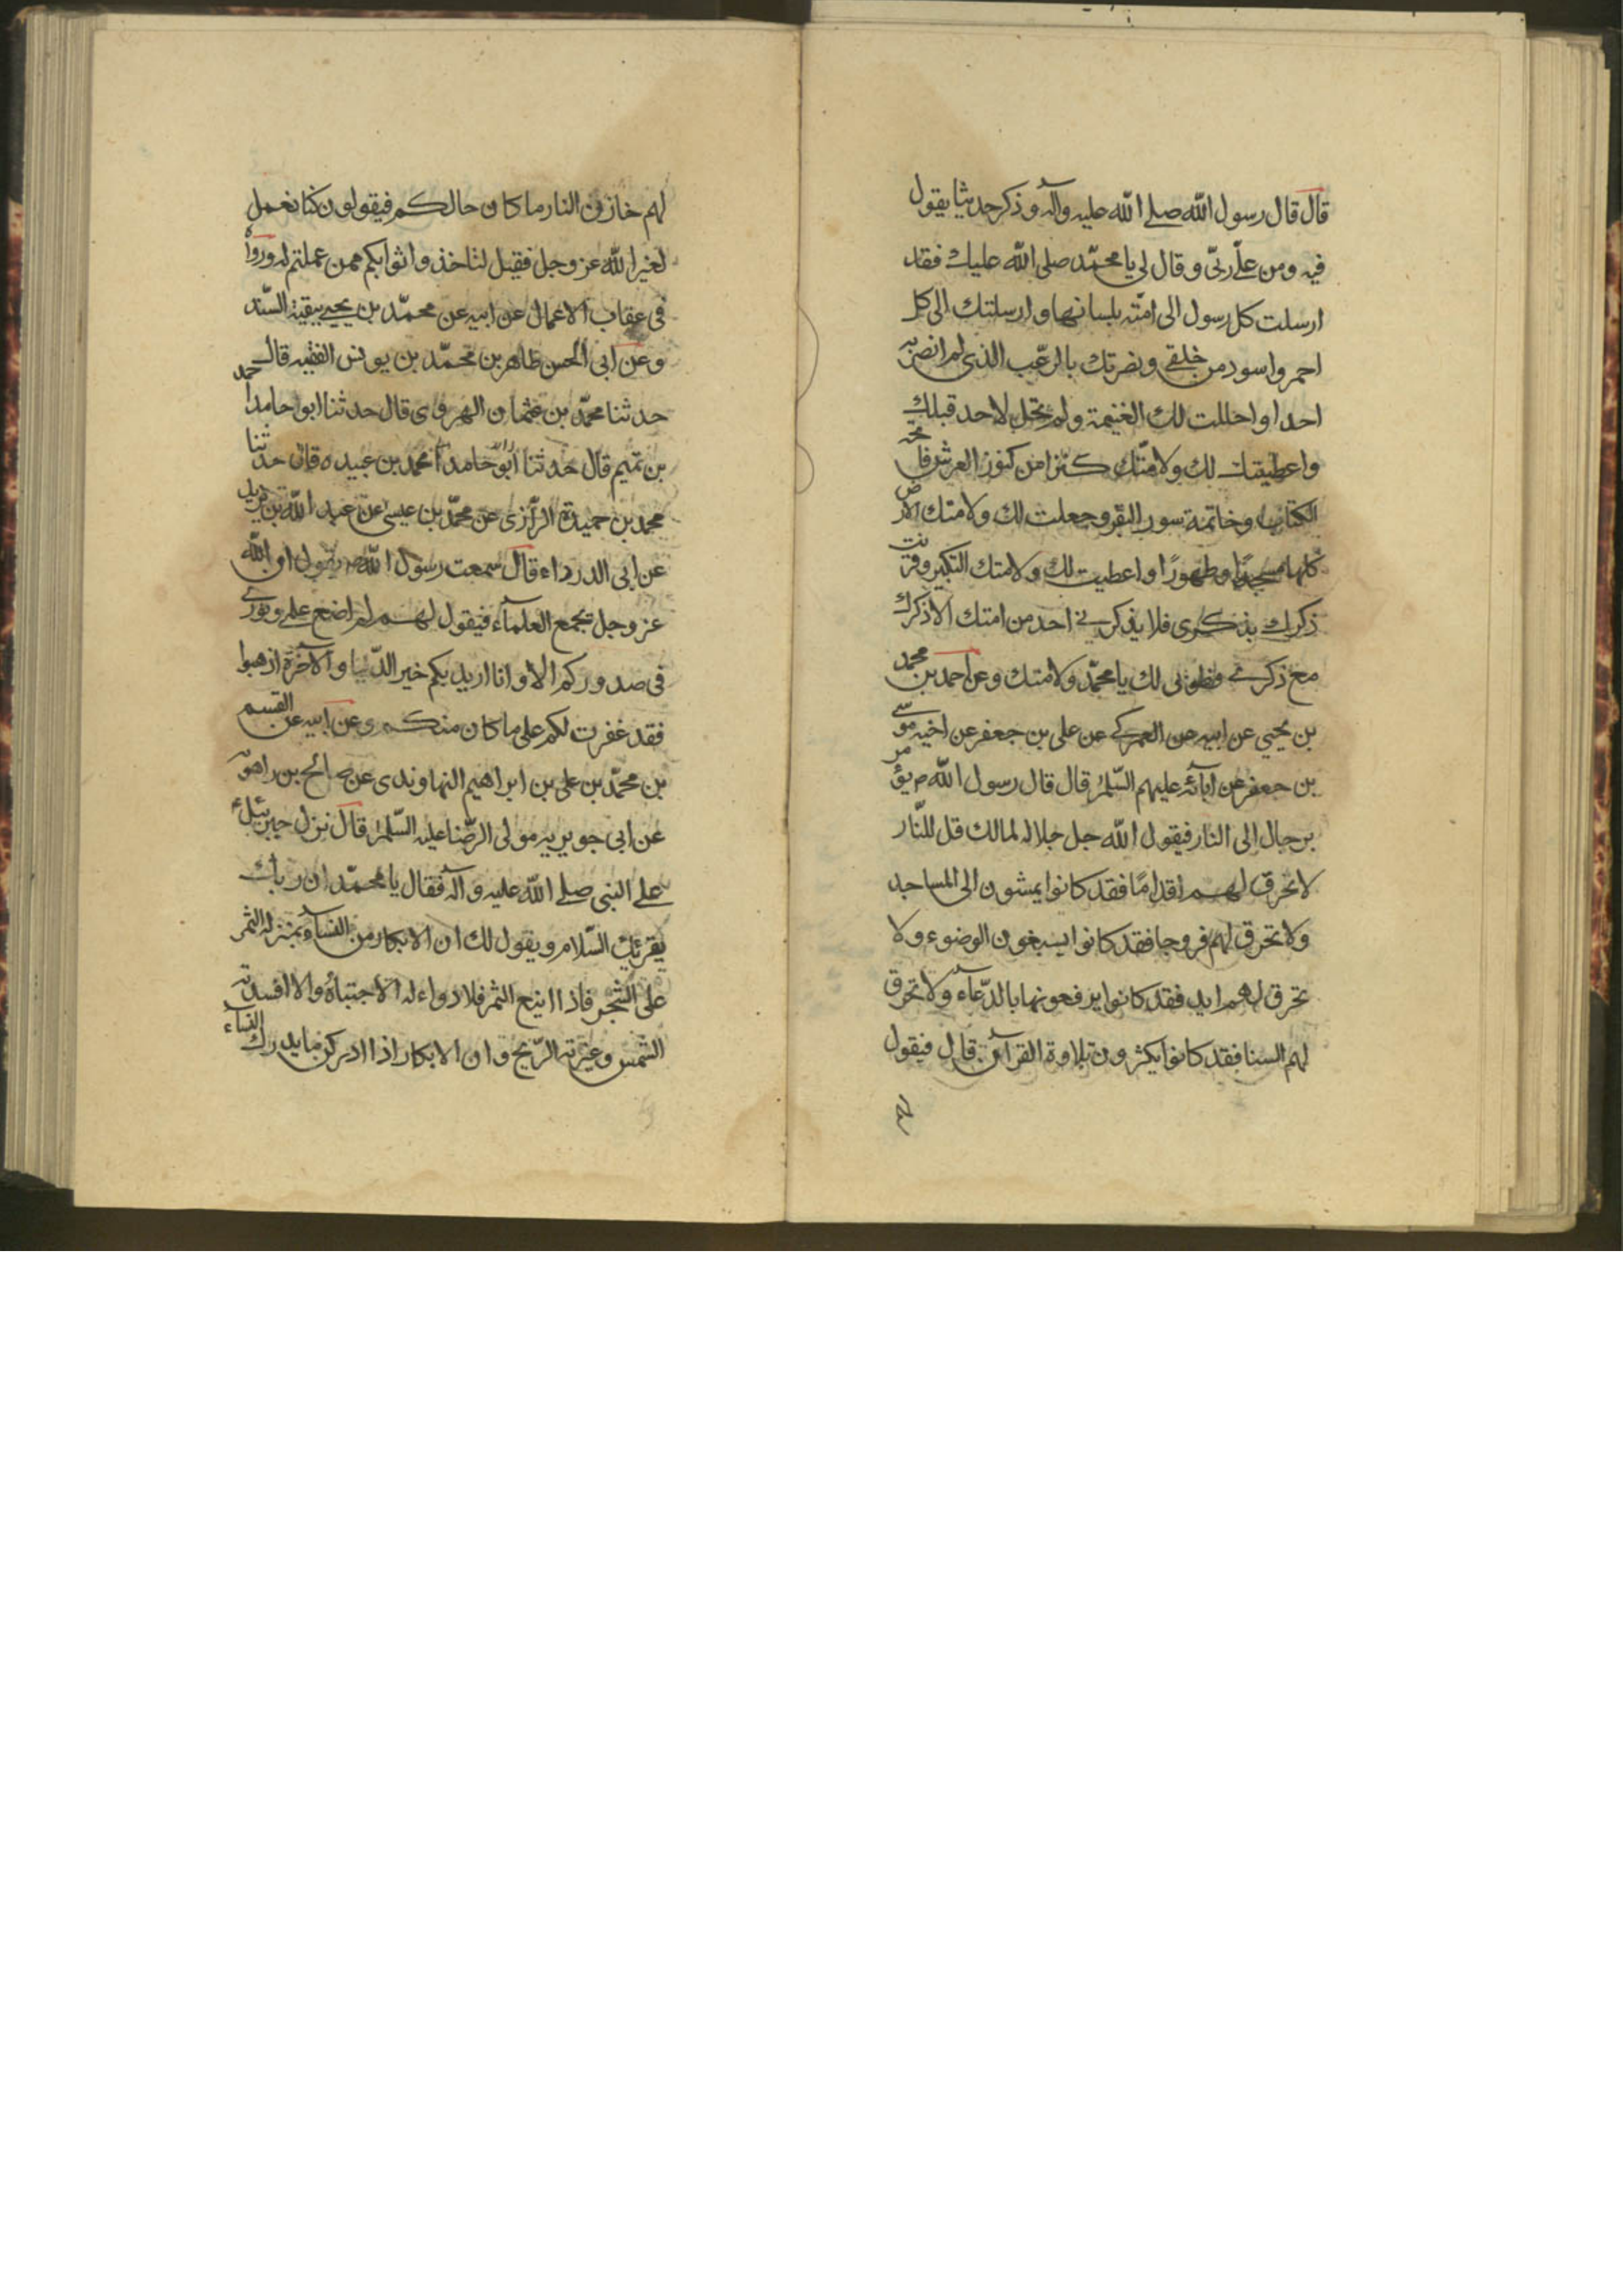 قال قال رسول الله صلى الله عليه وآله وذكر حديثا يقول
فيه ومن علّ ربّى وقال لى يا محمّد صلى الله عليك فقد
ارسلت كل رسول الى امّته بلسانها وارسلتك الى كل
احمر واسود من خلقى ونصرتك بالرّعب الذى لم انصر به
احدا واحللت لك الغنيمة ولم تحل لاحد قبلك
واعطيتك لك ولامّتك كنزا من كنوز العرش فاتحة
الكتاب وخاتمة سورة البقر وجعلت لك ولامتك الارض
كلها مسجدًا وطهورًا واعطيت لك ولامتك التكبير وقرنت
ذكرك بذكرى فلا يذكرنى احد من امتك الا ذكرك
مع ذكرى فطوبى لك يا محمّد ولامتك وعن احمد بن محمد
بن يحيي عن ابيه عن العمركى عن على بن جعفر عن اخيه موسى
بن جعفر عن آبائه عليهم السّلم قال قال رسول الله ص يؤمر
برجال الى النار فيقول الله جل جلاله لمالك قل للنّار
لا تحرق لهم اقدامًا فقد كانوا يمشون الى المساجد
ولا تحرق لهم فروجا فقد كانوا يسبغون الوضوء ولا
تحرق لهم ايد فقد كانوا يرفعونها بالدّعآء ولا تحرق
لهم السنا فقد كانوا يكثرون تلاوة القرآن قال فيقول
لهم
لهم خازن النار ما كان حالكم فيقولون كنا نعمل
لغير الله عز وجل فقيل لنا خذوا ثوابكم ممن عملتم له ورواه
فى عقاب الاعمال عن ابيه عن محمّد بن يحيى ببقية السّند
وعن ابى الحسن طاهر بن محمّد بن يونس الفقيه قال
حدثنا محمّد بن عثمان الهروى قال حدثنا ابو حامد احمد
بن تميم قال حدثنا ابو حامد محمد بن عبيده قال حدثنا
محمد بن حميدة الرّازى عن محمّد بن عيسى عن عبد الله بن يزيد
عن ابى الدرداء قال سمعت رسول الله ص يقول ان الله
عز وجل يجمع العلمآء فيقول لهم لم اضع علمى ونورى
فى صدوركم الا وانا اريد بكم خير الدّنيا والآخرة اذهبوا
فقد غفرت لكم على ما كان منكم وعن ابيه عن القسم
بن محمّد بن على بن ابراهيم النهاوندى عن صالح بن راهويه
عن ابى جويريه مولى الرضا عليه السّلم قال نزل جبرئيل
على النبى صلى الله عليه وآله فقال يا محمّد ان ربك
يقرئك السّلام ويقول لك ان الابكار من النسآء بمنزله الثمر
على الشجر فاذا اينع الثمر فلا دواء له الا اجتناؤه والا افسدته
الشمس وغيرته الرّيح وان الابكار اذا ادركن ما يدرك النساء